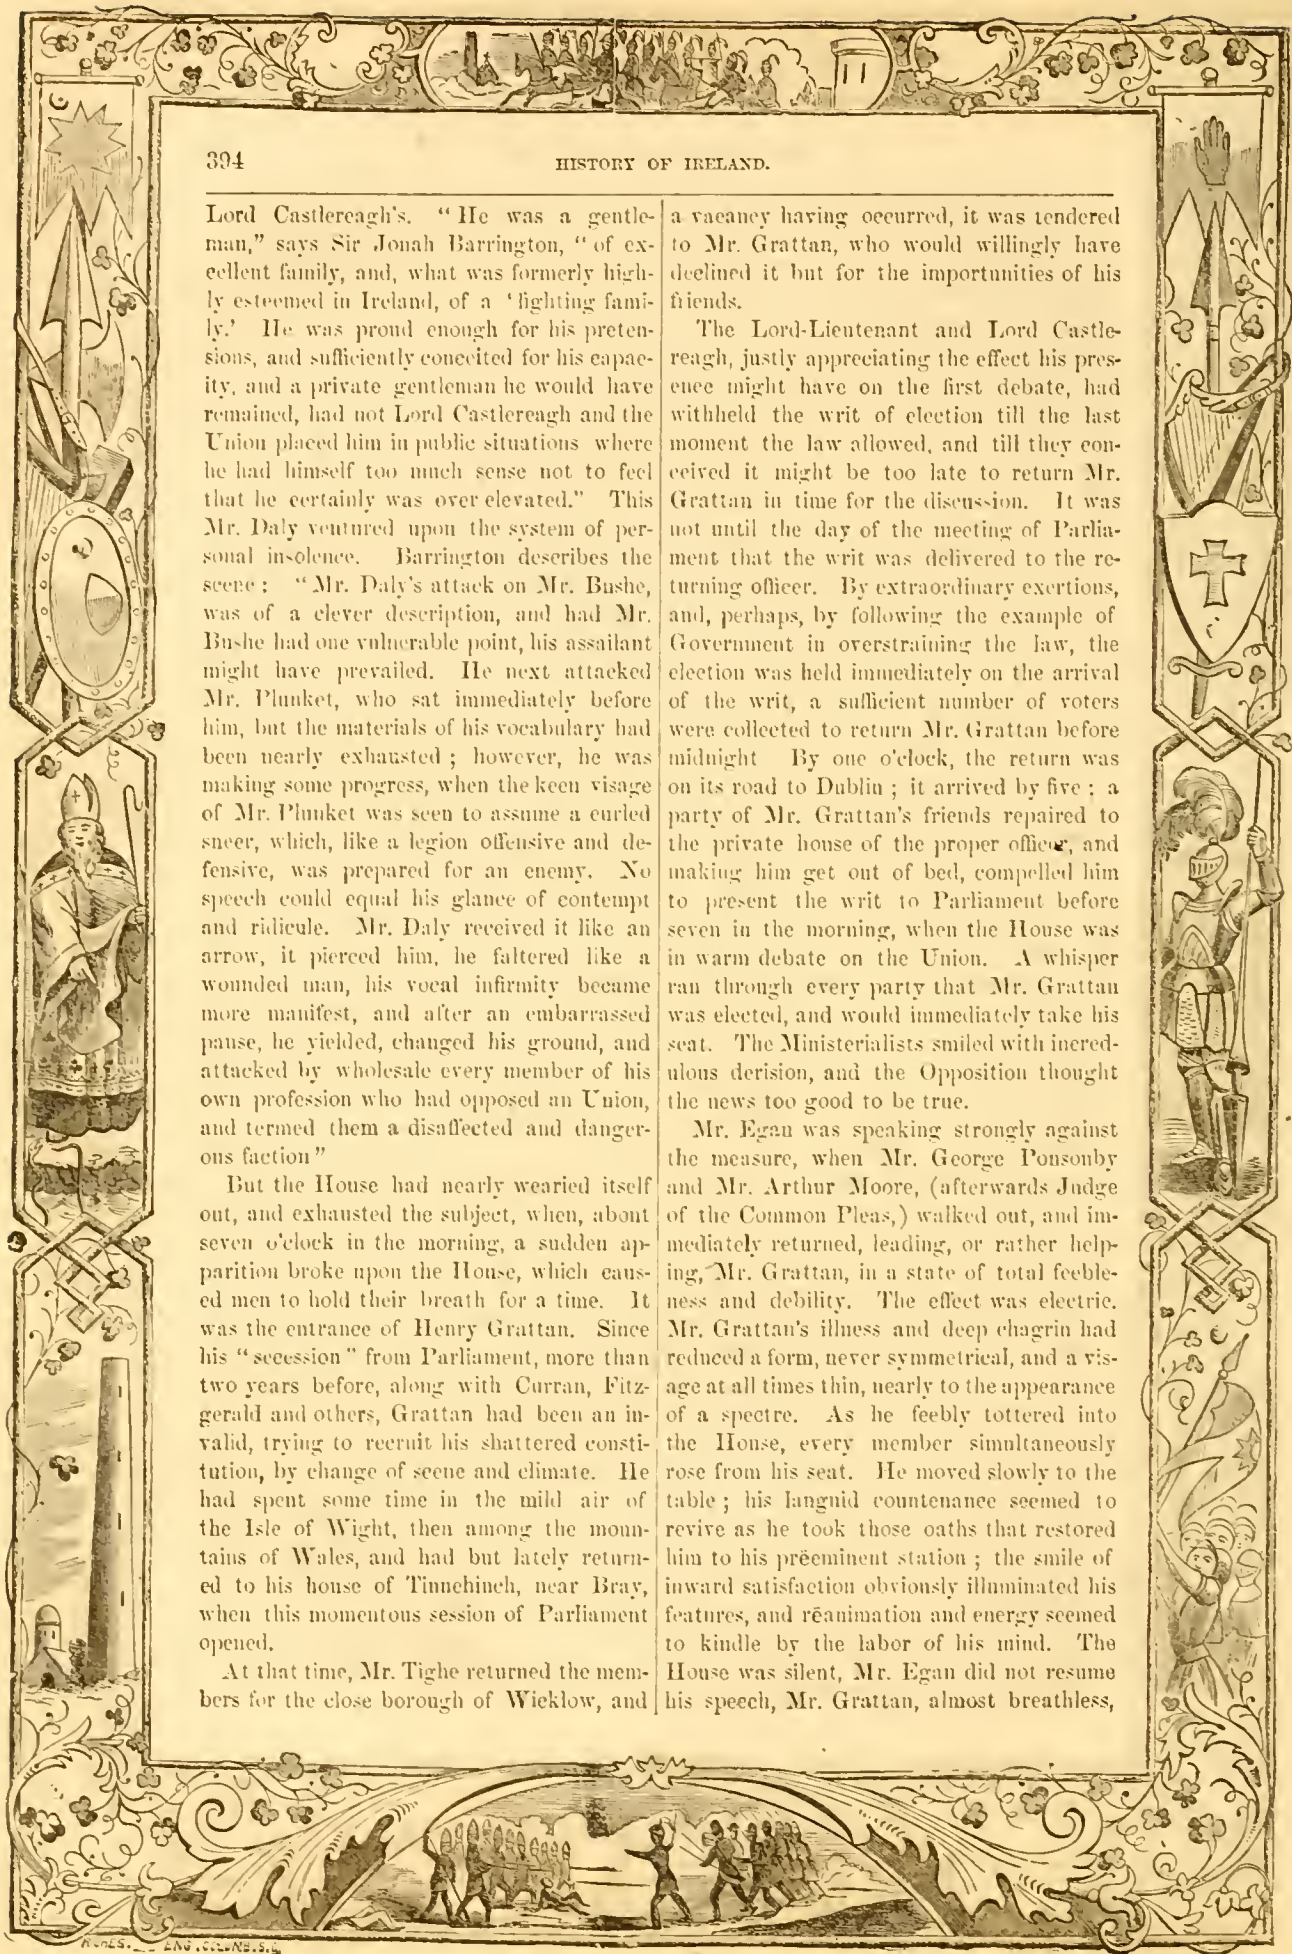 394
HISTORY OF IRELAND.
Lord Castlereagh's. “He was a gentle-
man,” says Sir Jonah Barrington, “of ex-
cellent family, and, what was formerly high-
ly esteemed in Ireland, of a ‘fighting fami-
ly.’ He was proud enough for his preten-
sions, and sufficiently conceited for his capac-
ity, and a private gentleman he would have
remained, had not Lord Castlereagh and the
Union placed him in public situations where
he had himself too much sense not to feel
that he certainly was over elevated.” This
Mr. Daly ventured upon the system of per-
sonal insolence. Barrington describes the
scene: “Mr. Daly's attack on Mr. Bushe,
was of a clever description, and had Mr.
Bushe had one vulnerable point, his assailant
might have prevailed. He next attacked
Mr. Plunket, who sat immediately before
him, but the materials of his vocabulary had
been nearly exhausted; however, he was
making some progress, when the keen visage
of Mr. Plunket was seen to assume a curled
sneer, which, like a legion offensive and de-
fensive, was prepared for an enemy. No
speech could equal his glance of contempt
and ridicule. Mr. Daly received it like an
arrow, it pierced him, he faltered like a
wounded man, his vocal infirmity became
more manifest, and after an embarrassed
pause, he yielded, changed his ground, and
attacked by wholesale every member of his
own profession who had opposed an Union,
and termed them a disaffected and danger-
ous faction”
But the House had nearly wearied itself
out, and exhausted the subject, when, about
seven o'clock in the morning, a sudden ap-
parition broke upon the House, which caus-
ed men to hold their breath for a time. It
was the entrance of Henry Grattan. Since
his “secession” from Parliament, more than
two years before, along with Curran, Fitz-
gerald and others, Grattan had been an in-
valid, trying to recruit his shattered consti-
tution, by change of scene and climate. He
had spent some time in the mild air of
the Isle of Wight, then among the moun-
tains of Wales, and had but lately return-
ed to his house of Tinnehinch, near Bray,
when this momentous session of Parliament
opened.
At that time, Mr. Tighe returned the mem-
bers for the close borough of Wicklow, and
a vacancy having occurred, it was tendered
to Mr. Grattan, who would willingly have
declined it but for the importunities of his
friends.
The Lord-Lieutenant and Lord Castle-
reagh, justly appreciating the effect his pres-
ence might have on the first debate, had
withheld the writ of election till the last
moment the law allowed, and till they con-
ceived it might be too late to return Mr.
Grattan in time for the discussion. It was
not until the day of the meeting of Parlia-
ment that the writ was delivered to the re-
turning officer. By extraordinary exertions,
and, perhaps, by following the example of
Government in overstraining the law, the
election was held immediately on the arrival
of the writ, a sufficient number of voters
were collected to return Mr. Grattan before
midnight By one o'clock, the return was
on its road to Dublin; it arrived by five; a
party of Mr. Grattan's friends repaired to
the private house of the proper officer, and
making him get out of bed, compelled him
to present the writ to Parliament before
seven in the morning, when the House was
in warm debate on the Union. A whisper
ran through every party that Mr. Grattan
was elected, and would immediately take his
seat. The Ministerialists smiled with incred-
ulous derision, and the Opposition thought
the news too good to be true.
Mr. Egan was speaking strongly against
the measure, when Mr. George Ponsonby
and Mr. Arthur Moore, (afterwards Judge
of the Common Pleas,) walked out, and im-
mediately returned, leading, or rather help-
ing, Mr. Grattan, in a state of total feeble-
ness and debility. The effect was electric.
Mr. Grattan's illness and deep chagrin had
reduced a form, never symmetrical, and a vis-
age at all times thin, nearly to the appearance
of a spectre. As he feebly tottered into
the House, every member simultaneously
rose from his seat. He moved slowly to the
table; his languid countenance seemed to
revive as he took those oaths that restored
him to his prëeminent station; the smile of
inward satisfaction obviously illuminated his
features, and rëanimation and energy seemed
to kindle by the labor of his mind. The
House was silent, Mr. Egan did not resume
his speech, Mr. Grattan, almost breathless,